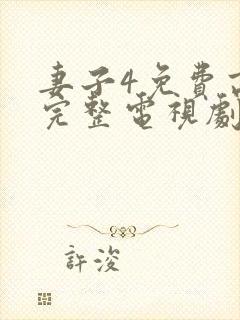 妻子4免費
完整電視劇
許浚